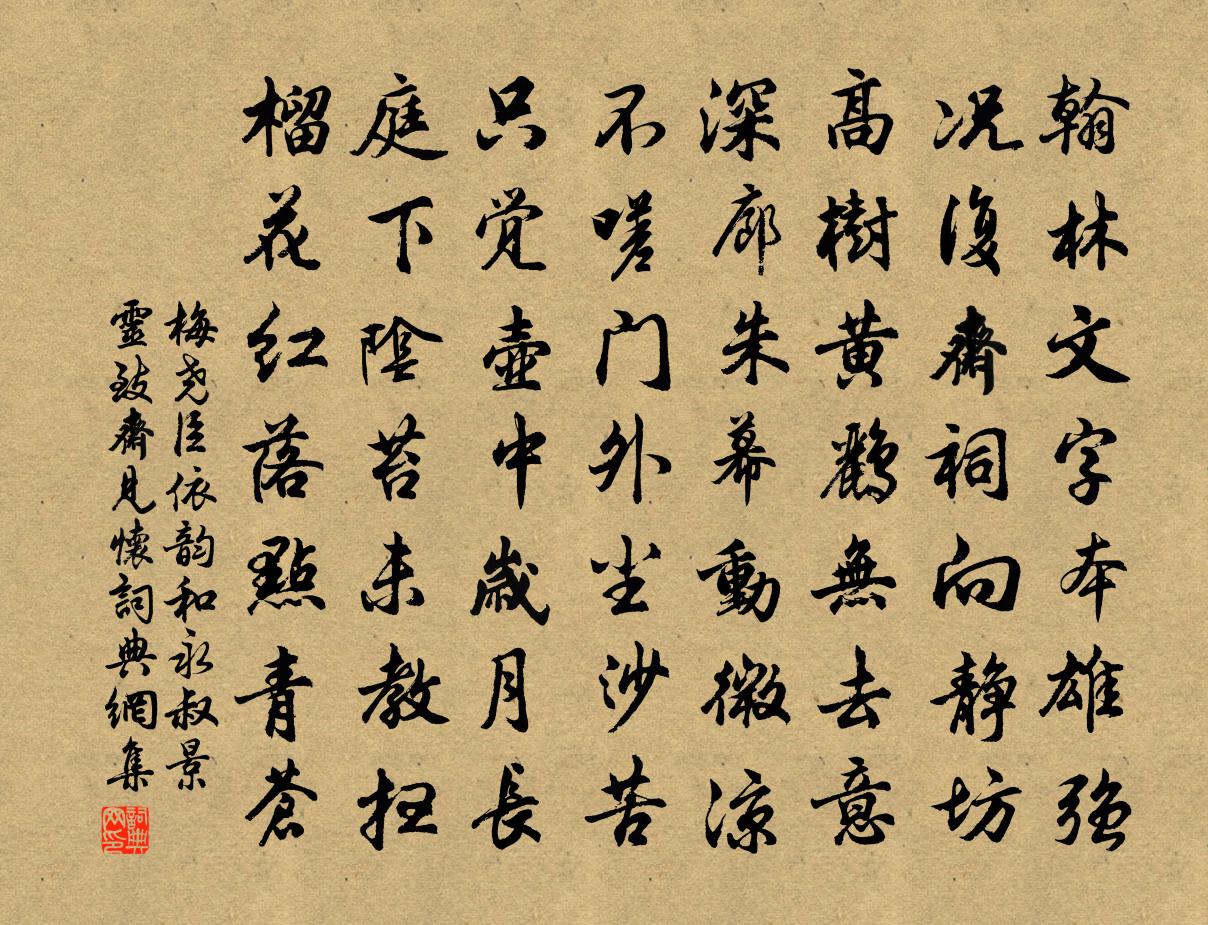 翰林文字本雄強
况復齋祠向静坊
髙樹黄鸝無去意
深廊朱幕動微涼
不嗟門外尘沙苦
只覚壷中歳月長
庭下陰苔未教扫
榴花红落點青蒼
梅尧臣依韵和永叔景
靈致齋見懷詞典網集
詞典
网印